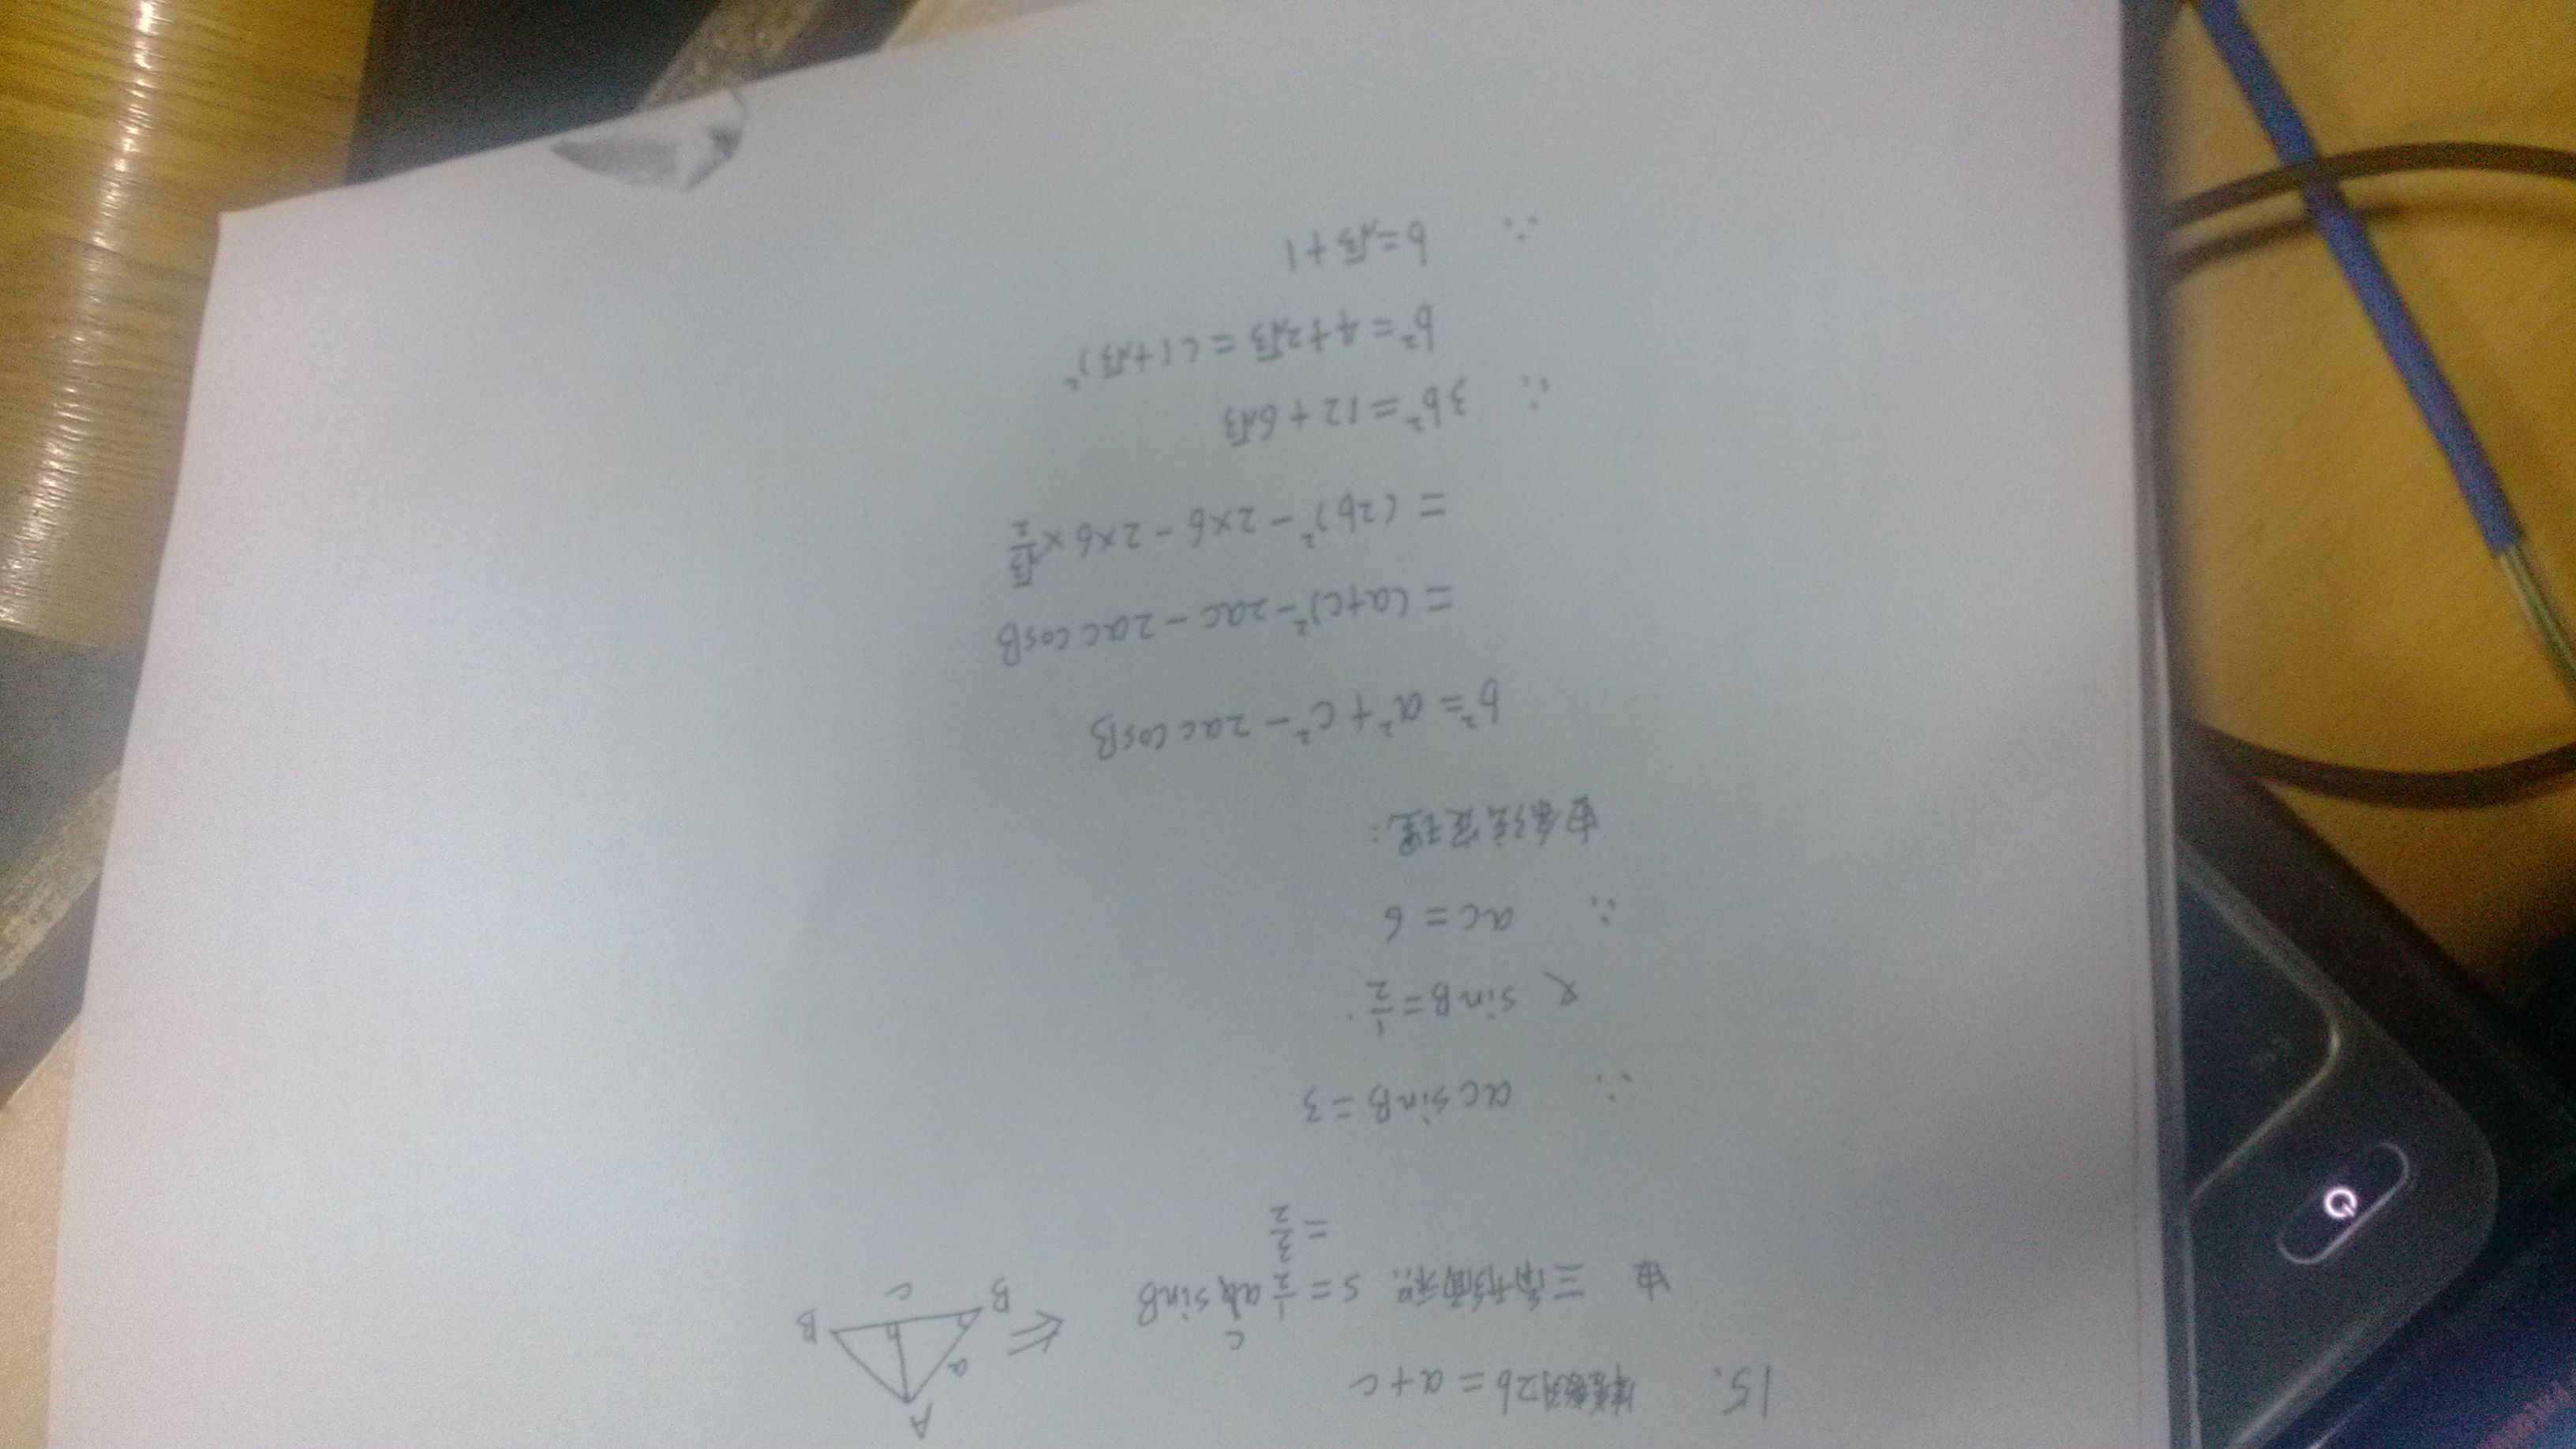 15. 等差数列2b=a+c
由 三角形面积: S=½acsinB
=3/2
A
a
B
c
B
∴ acsinB=3
又 sinB=½.
∴ ac=6
由余弦定理:
b²=a²+c²-2accosB
=(a+c)²-2ac-2accosB
=(2b)²-2×6-2×6×√3/2
∴ 3b²=12+6√3
b²=4+2√3=(1+√3)²
∴ b=√3+1